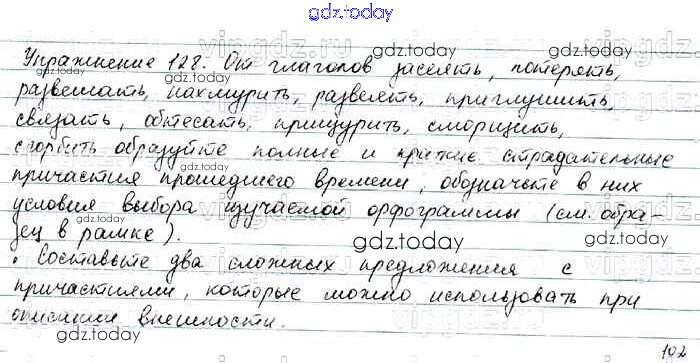 gdz.today
Упражнение 128. От глаголов засеять, потерять,
развешать, нахмурить, развеять, приглушить,
связать, обтесать, прищурить, сморщить,
сгорбить образуйте полные и краткие страдательные
причастия прошедшего времени, обозначьте в них
условия выбора изучаемой орфограммы (см. обра-
зец в рамке).
• Составьте два сложных предложения с
причастиями, которые можно использовать при
описании внешности.
107